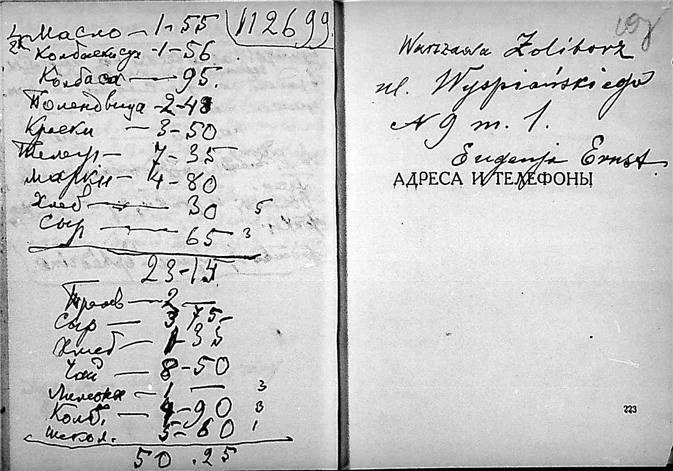 Масло - 1 - 55
112699
Колбаса — 95.
Полендвица - 2 - 48
Краски — 3 - 50
Телегр — 7 - 35
марки — 4 - 80
Хлеб — 30 5
Сыр — 65 3
23 - 15
2 —
Сыр — 3 75 -
Хлеб — 1 - 35
Чай — 8 - 50
1 — 3
Колб. — 9 - 90 3
шокол. 5 - 80 1
50.25
Warszawa Żoliborz
ul. Wyspiańskiego
N 9 m. 1.
Eugenja Ernst.
АДРЕСА И ТЕЛЕФОНЫ
223